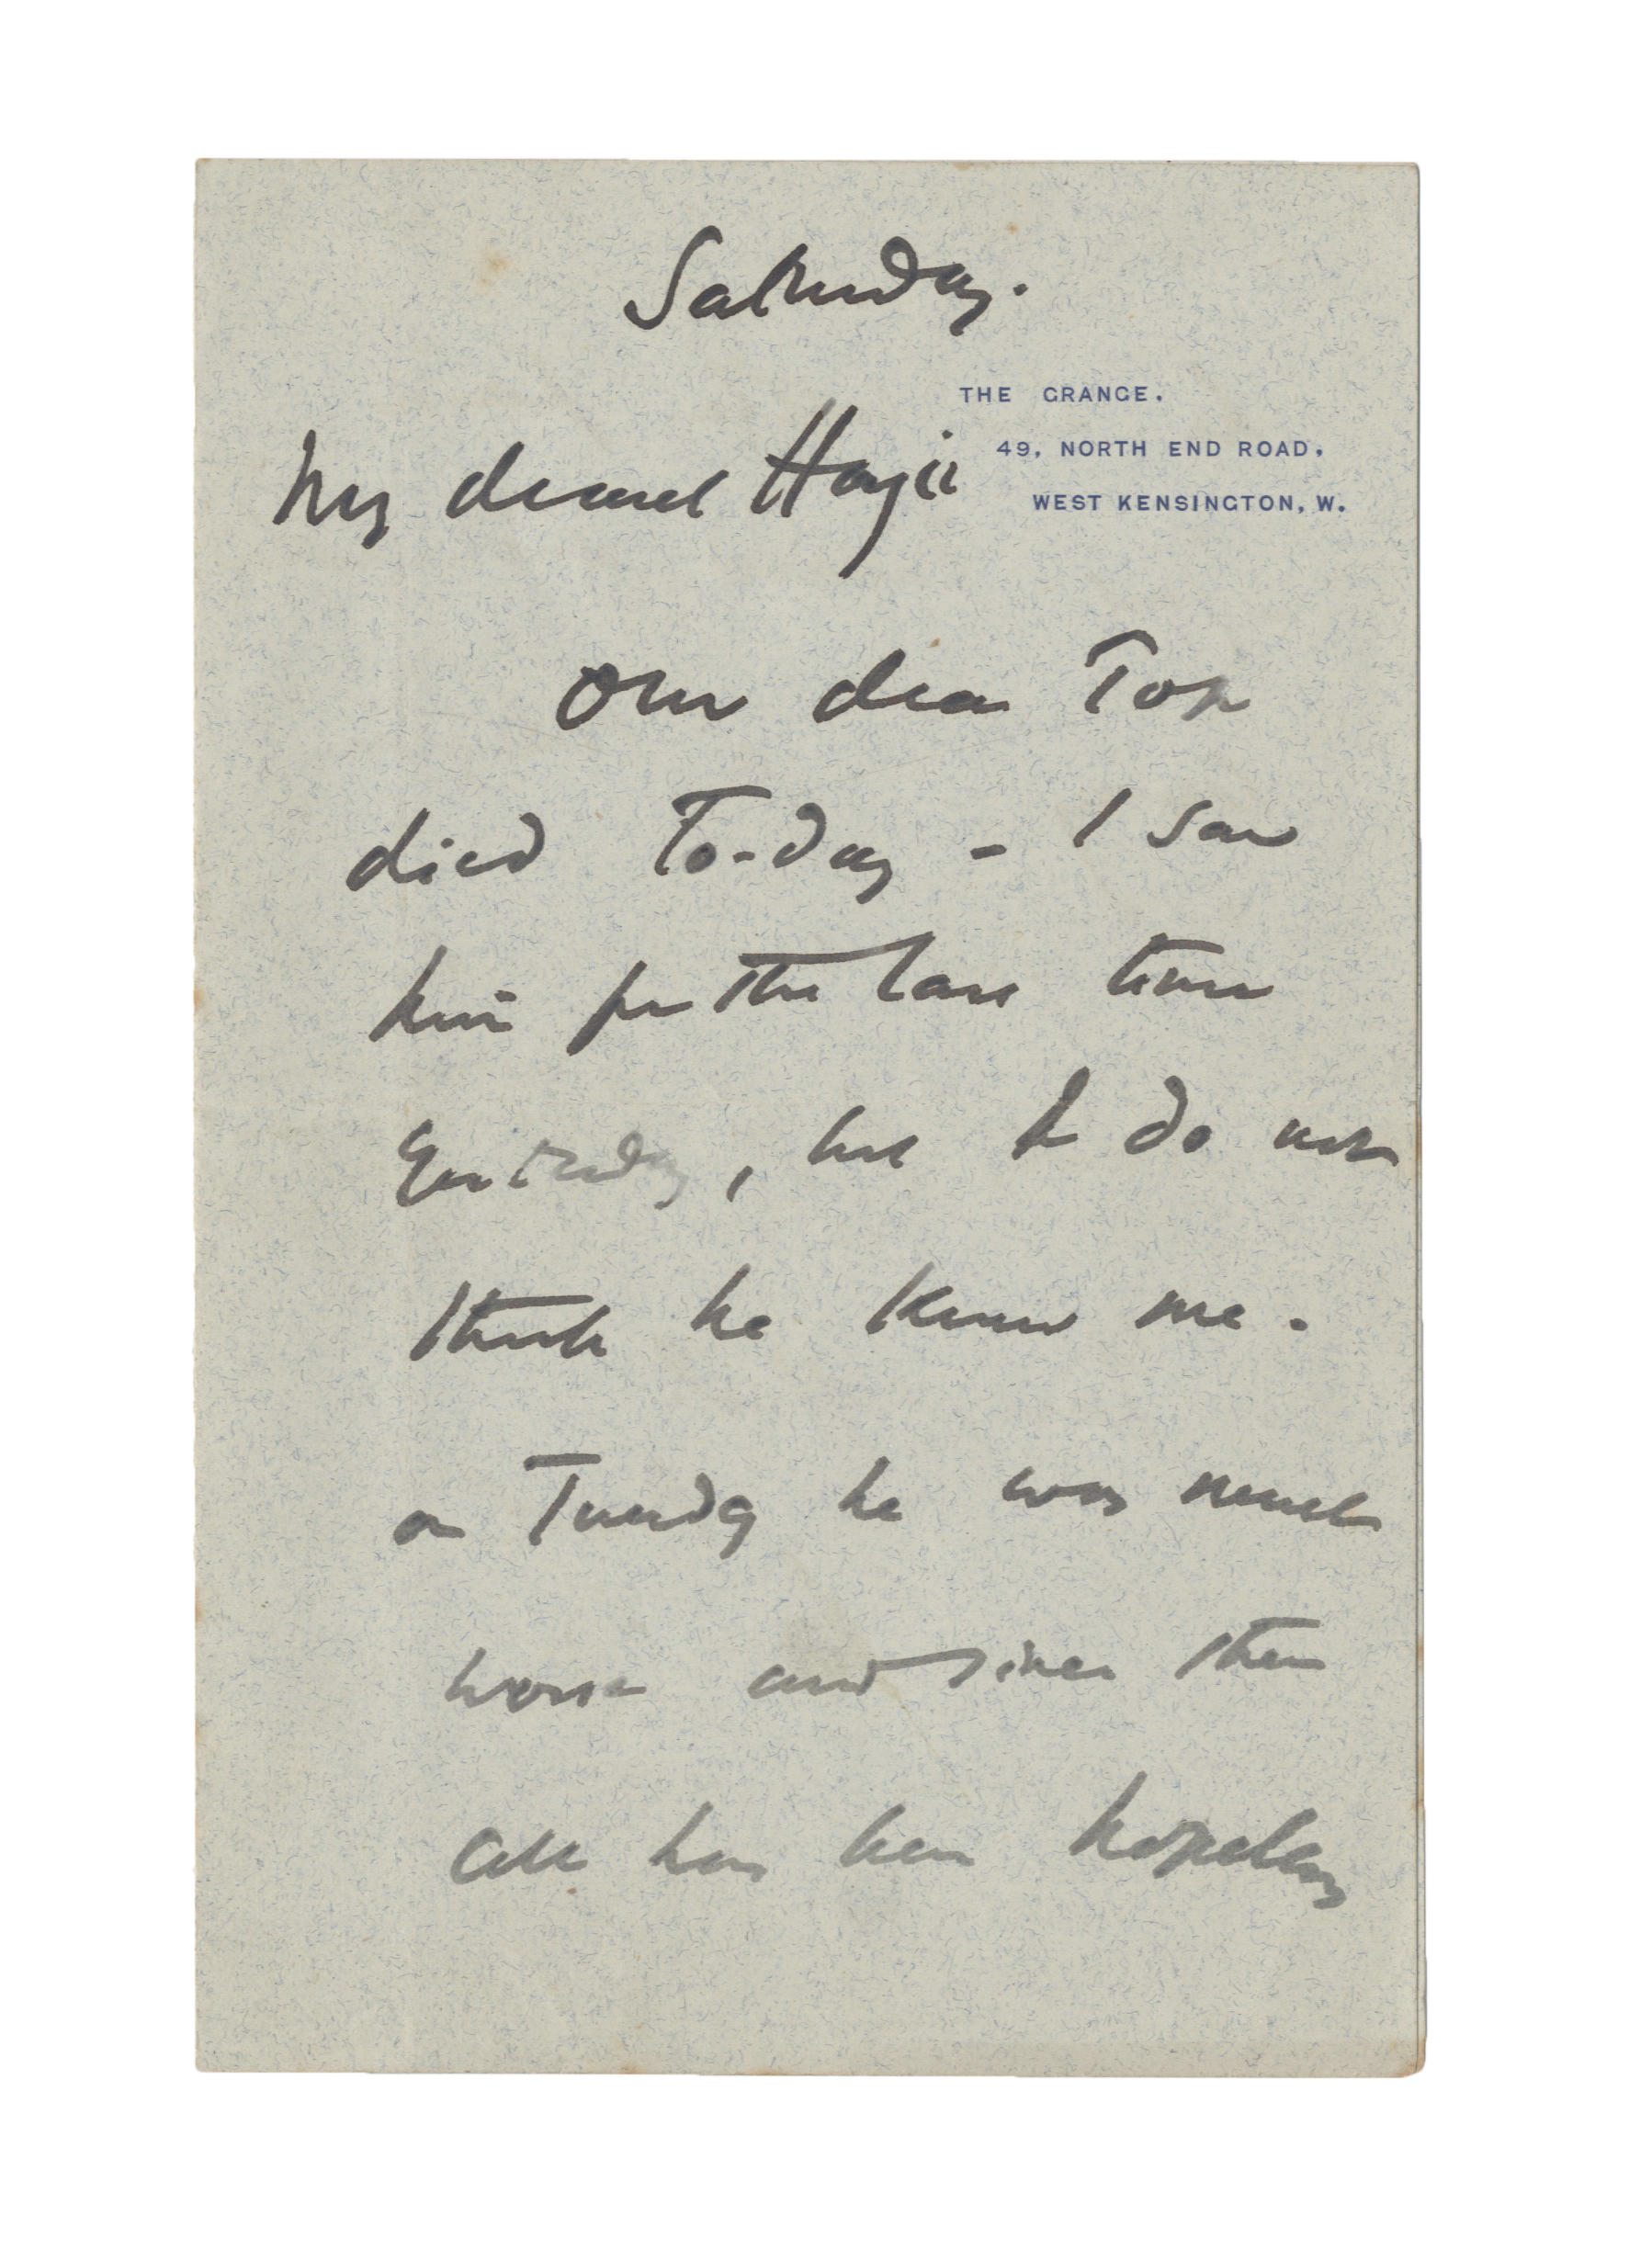 Saturday.
THE GRANGE.
49, NORTH END ROAD,
WEST KENSINGTON, W.
My dearest
Our dear Top
died To-day – I saw
him for the last time
yesterday, but I do not
think he knew me.
on Tuesday he was much
worse and since then
all has been hopeless